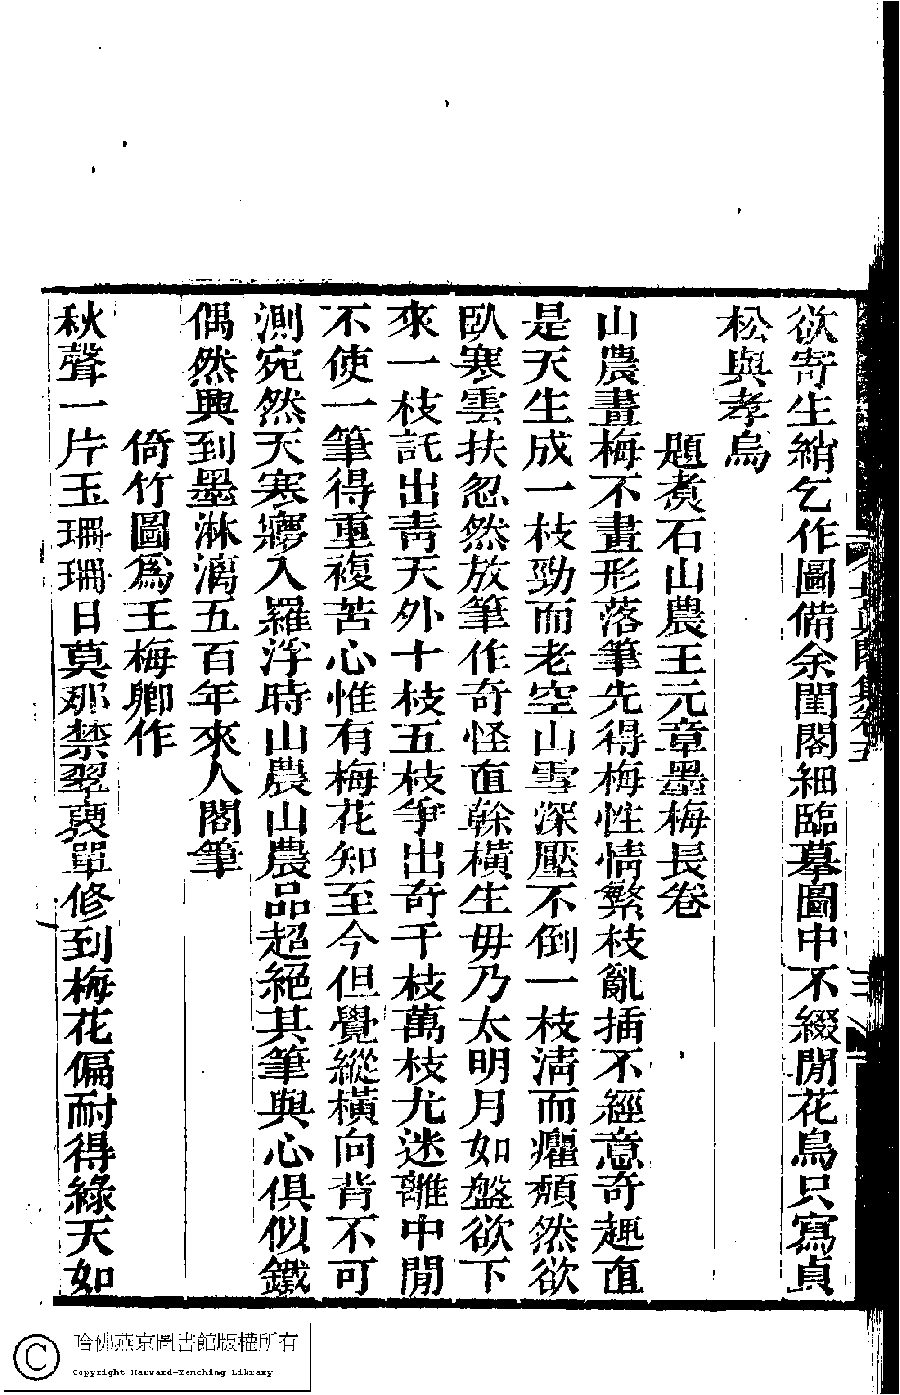 欲寄生綃乞作圖備余閨閣細臨摹圖中不綴閒花鳥只寫貞
松與孝烏
題煑石山農王元章墨梅長卷
山農畫梅不畫形落筆先得梅性情繁枝亂插不經意奇趣直
是天生成一枝勁而老空山雪深壓不倒一枝淸而癯頹然欲
臥寒雲扶忽然放筆作奇怪直榦橫生毋乃太明月如盤欲下
來一枝託出靑天外十枝五枝爭出奇千枝萬枝尤迷離中閒
不使一筆得重複苦心惟有梅花知至今但覺縱橫向背不可
測宛然天寒夢入羅浮時山農山農品超絕其筆與心俱似鐵
偶然興到墨淋漓五百年來人閣筆
倚竹圖爲王梅卿作
秋聲一片玉珊珊日莫那禁翠褏單修到梅花偏耐得綠天如
哈佛燕京圖書館版權所有
Copyright Harvard-Yenching Library